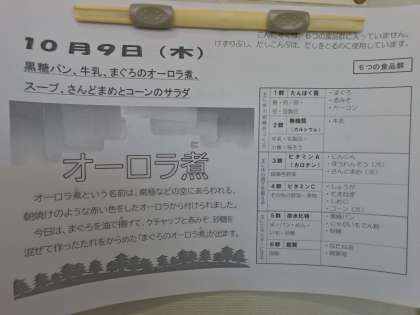 こんだてには、6つの食品群に入っていません。
けずりぶし、だしこんぶは、だしをとるのに使用しています。
10月9日(木)
黒糖パン、牛乳、まぐろのオーロラ煮、
スープ、さんどまめとコーンのサラダ
6つの食品群
オーロラ煮
オーロラ煮という名前は、南極などの空にあらわれる、
朝焼けのような赤い色をしたオーロラから付けられました。
今日は、まぐろを油で揚げて、ケチャップと赤みそ、砂糖を
混ぜて作ったたれをからめた「まぐろのオーロラ煮」が出ます。
1群 たんぱく質
・まぐろ
・赤みそ
・ベーコン
2群 無機質
(カルシウム)
・牛乳
3群 ビタミンA
(カロテン)
緑黄色野菜
・にんじん
・ほうれんそう
・さんどまめ
4群 ビタミンC
その他の野菜・果物
・しょうが
・たまねぎ
・しめじ
・コーン
5群 炭水化物
・黒糖パン
・じゃがいもでん粉
・砂糖
6群 脂質
・なたね油
・綿実油